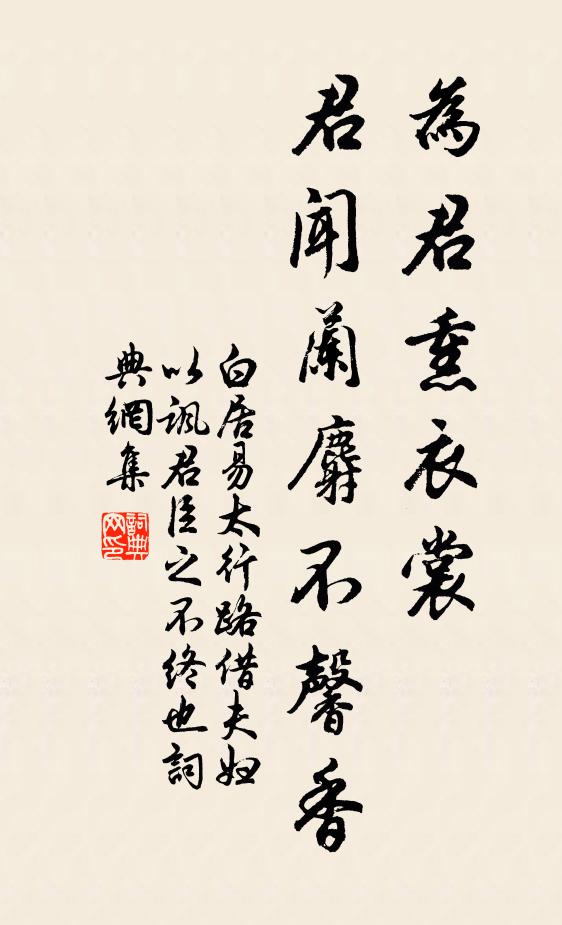 為君熏衣裳
君聞蘭麝不馨香
白居易太行路借夫婦
以諷君臣之不終也詞
典網集
詞典网印